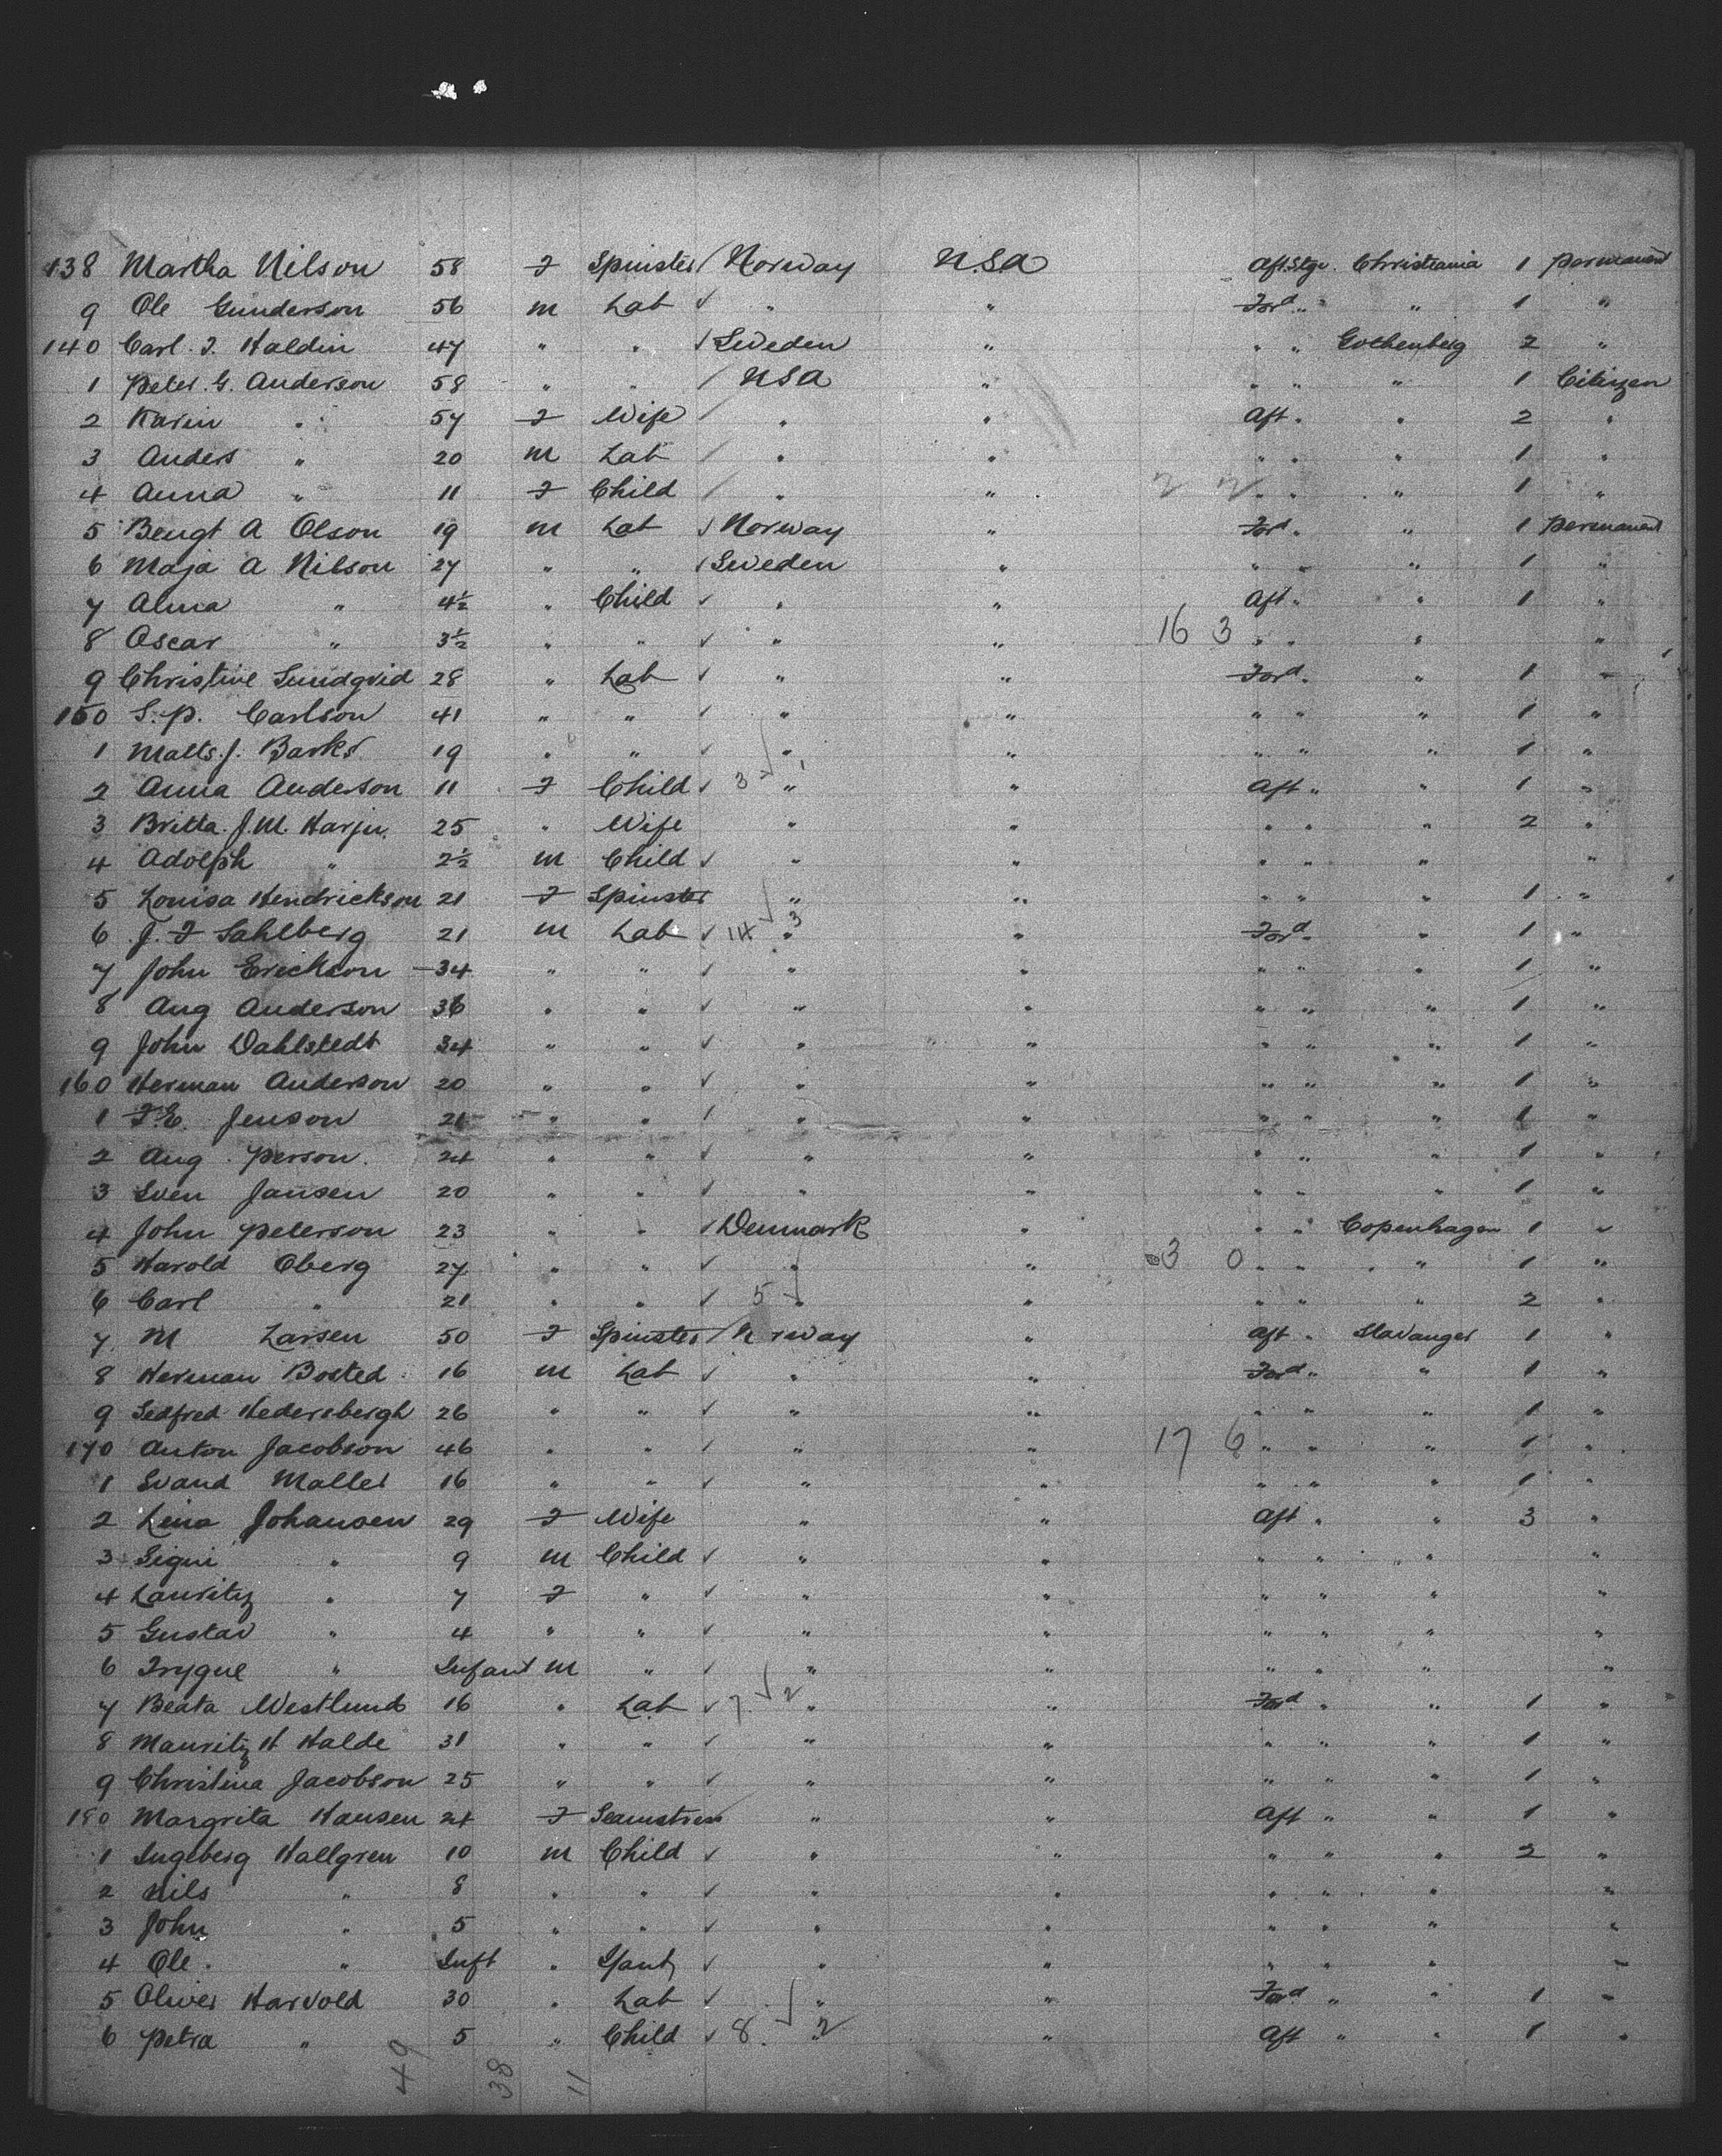 138 Martha Nilson 58 F Spinster / Norway U.S.A Aft.Stge. Christiania 1 Permanent
9 Ole Gunderson 56 m Lab ✓ " " Ford " " 1 "
140 Carl. F. Haldin 47 " " ✓ Sweden " " " Gothenberg 2 "
1 Peter. G. Anderson 58 " " / USA " " " " 1 Citizen
2 Karin " 57 F Wife / " " Aft " " 2 "
3 Anders " 20 m Lab / " " " " " 1 "
4 Anna " 11 F Child / " " 2 2 " " " 1 "
5 Bengt A Olson 19 m Lab ✓ Norway " Ford " " 1 Permanent
6 Maja A Nilson 27 " " ✓ Sweden " " " " 1 "
7 Alma " 4½ " Child ✓ " " Aft " " 1 "
8 Oscar " 3½ " " ✓ " " 16 3 " " " "
9 Christine Lundqvid 28 " Lab ✓ " " Ford " " 1 "
150 S. P. Carlson 41 " " ✓ " " " " " 1 "
1 Matts. J. Barks 19 " " ✓ " " " " " 1 "
2 Anna Anderson 11 F Child ✓ 3 ✓ 1 " " Aft " " 1 "
3 Britta. J. M. Harju. 25 " Wife " " " " " 2 "
4 Adolph " 2½ m Child ✓ " " " " " "
5 Louisa Hendrickson 21 F Spinster " " " " " 1 "
6 J. F Sahlberg 21 m Lab ✓ 14 ✓ 3 " " Ford " " 1 "
7 John Erickson 34 " " ✓ " " " " " 1 "
8 Aug Anderson 36 " " ✓ " " " " " 1 "
9 John Dahlstedt 34 " " ✓ " " " " " 1 "
160 Herman Anderson 20 " " ✓ " " " " " 1 "
1 F. E. Jenson 21 " " / " " " " " 1 "
2 Aug. Person. 24 " " ✓ " " " " " 1 "
3 Sven Jansen 20 " " ✓ " " " " " 1 "
4 John Peterson 23 " " ✓ Denmark " " " Copenhagen 1 "
5 Harold Oberg 27 " " ✓ " " 3 0 " " " 1 "
6 Carl " 21 " " ✓ 5 ✓ " " " " " 2 "
7 M Larsen 50 F Spinster / N rway " Aft " Stavanger 1 "
8 Herman Bosted 16 m Lab ✓ " " Ford " " 1 "
9 Sedfred Hedersbergh 26 " " ✓ " " " " " 1 "
170 Anton Jacobson 46 " " ✓ " " 17 6 " " " 1 "
1 Svand Maller 16 " " ✓ " " " " " 1 "
2 Lina Johansen 29 F Wife " " Aft " " 3 "
3 Signi " 9 m Child ✓ " " " " " "
4 Lauritz " 7 F " ✓ " " " " " "
5 Gustav " 4 " " ✓ " " " " " "
6 Trygue " Infant m " ✓ " " " " " "
7 Beata Westlund 16 " Lab ✓ 7 ✓ 2 " " Ford " " 1 "
8 Mauritz H Halde 31 " " ✓ " " " " " 1 "
9 Christina Jacobson 25 " " ✓ " " " " " 1 "
180 Margrita Hansen 24 F Seamstress " " Aft " " 1 "
1 Ingeberg Hallgren 10 m Child ✓ " " " " " 2 "
2 Nils " 8 " " ✓ " " " " " "
3 John " 5 " " ✓ " " " " " "
4 Ole. " Inft " ✓ " " " " " "
5 Oliver Harvold 30 " Lab ✓ " " Ford " " 1 "
6 Petra " 5 " Child ✓ 8 ✓ 2 " " Aft " " 1 "
49 38 11